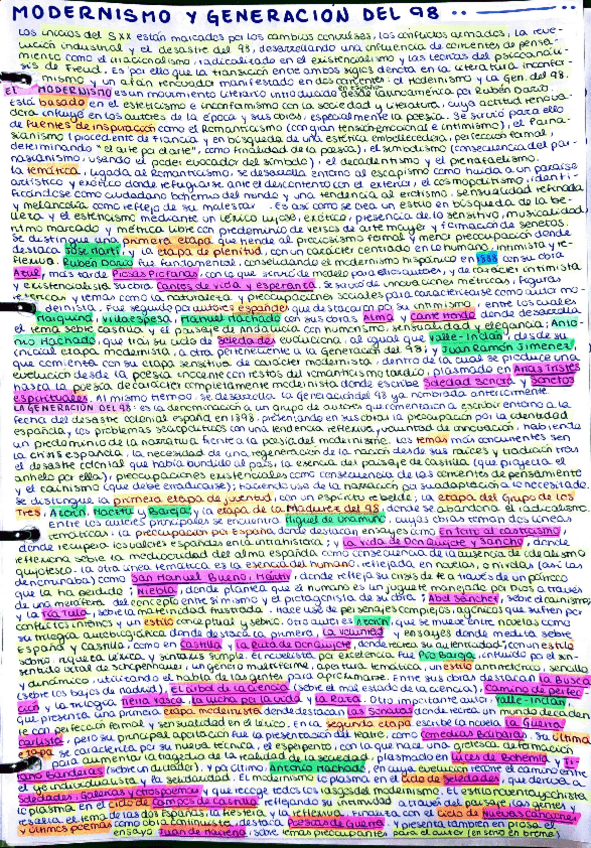 MODERNISMO Y GENERACIÓN DEL 98
Los inicios del SXX están marcados por los cambios convulsos, los conflictos armados, la revo-
lución industrial y el desastre del 98, desarrollando una influencia de corrientes de pensa-
miento como el irracionalismo, radicalizado en el existencialismo y las teorías del psicoanáli-
sis de Freud. Es por ello que la transición entre ambos siglos denota en la literatura inconfor-
mismo y un afán renovador manifestado en dos corrientes: el modernismo y la Gen. del 98.
EL MODERNISMO es un movimiento literario introducido en español desde latinoamérica por Rubén Darío.
Está basado en el esteticismo e inconformismo con la sociedad y literatura, cuya actitud renova-
dora influye en los autores de la época y sus obras, especialmente la poesía. Se sirvió para ello
de fuentes de inspiración como el Romanticismo (con gran tensión emocional e intimismo), el Parna-
sianismo (procedente de Francia y en búsqueda de una estética embellecedora, perfección formal,
determinando "el arte por arte", como finalidad de la poesía), el simbolismo (consecuencia del par-
nasianismo, usando el poder evocador del símbolo), el decadentismo y el prerrafaelismo.
La temática, ligada al Romanticismo, se desarrolla entorno al escapismo como huida a un paraíso
artístico y exótico donde refugiarse ante el descontento con el exterior, el cosmopolitismo, identi-
ficándose como ciudadano bohemio del mundo y una tendencia al erotismo, sensualidad refinada
y melancolía como reflejo de su malestar. Es así como se crea un estilo en búsqueda de la be-
lleza y el esteticismo mediante un léxico lujoso, exótico, presencia de lo sensitivo, musicalidad,
ritmo marcado y métrica libre con predominio de versos de arte mayor y formación de sonetos.
Se distingue una primera etapa que tiende al preciosismo formal y menor preocupación donde
destaca José Martí, y la etapa de plenitud, con un carácter centrado en lo humano, intimista y re-
flexiva. Rubén Darío fue fundamental, consolidando el modernismo hispánico en 1888 con su obra
Azul, más tarde Prosas Profanas, con lo que sirvió de modelo para ellos autores, y de carácter intimista
y existencialista su obra Cantos de vida y esperanza. Se sirvió de innovaciones métricas, figuras
retóricas y temas como la naturaleza y preocupaciones sociales para caracterizarse como autor mo-
dernista. Fue seguido por autores españoles que destacaron por su intimismo, entre los cuales
Manuel Machado con sus obras Alma y Cante hondo donde desarrolla
el tema sobre castilla y el paisaje de Andalucía con humanismo, sensualidad y elegancia; Anto-
nio Machado, que tras su ciclo de Soledades evoluciona, al igual que Valle-Inclán, desde su
inicial etapa modernista, a otra perteneciente a la Generación del 98; y Juan Ramón Jiménez,
que comienza con su etapa sensitiva, de carácter modernista, dentro de la cual se produce una
evolución desde la poesía inocente con restos del romanticismo tardío, plasmado en Arias Tristes
hasta la poesía de carácter completamente modernista donde escribe Soledad sonora y Sonetos
espirituales. Al mismo tiempo, se desarrolla la Generación del 98 ya nombrada anteriormente.
LA GENERACIÓN DEL 98: es la denominación a un grupo de autores que comienzan a escribir entorno a la
fecha del desastre colonial español en 1898, presentando en sus obras la preocupación por la identidad
española, los problemas sociopolíticos con una tendencia reflexiva y voluntad de innovación, habiendo
un predominio de la narrativa frente a la poesía del modernismo. Los temas más concurrentes son
la crisis española, la necesidad de una regeneración de la nación desde sus raíces y tradición tras
el desastre colonial que había hundido al país, la esencia del paisaje de castilla (que proyecta el
anhelo por ella), preocupaciones existenciales como consecuencia de las corrientes de pensamiento
y el cainismo (que debe erradicarse), haciendo uso de la narración por su adaptación a lo necesitado.
Se distingue la primera etapa de juventud, con un espíritu rebelde; la etapa del Grupo de los
Tres, Azorín, Maeztu y Baroja; y la etapa de la Madurez del 98, donde se abandona el radicalismo.
Entre los autores principales se encuentra Miguel de Unamuno, cuyas obras toman dos líneas
temáticas: la preocupación por España donde destacan ensayos como En torno al casticismo,
donde recupera los valores españoles en la intrahistoria; y La vida de Don Quijote y Sancho, donde
reflexiona sobre la mediocridad del alma española como consecuencia de la ausencia de idealismo
quijotesco. La otra línea temática es la esencia del humano, reflejada en novelas, o nivolas (así las
denominaba) como San Manuel Bueno, Mártir, donde refleja su crisis de fe a través de un párroco
que la ha perdido; Niebla, donde plantea que el humano es un juguete manejado por Dios a través
de una metáfora del concepto entre sí mismo y el protagonista de su obra; Abel Sánchez, sobre el cainismo;
y La tía Tula, sobre la maternidad frustrada. Hace uso de personajes complejos, agónicos que sufren por
conflictos internos y un estilo conceptual y sobrio. Otro autor es Azorín, que se mueve entre novelas como
su trilogía autobiográfica donde destaca la primera, La voluntad y ensayos donde medita sobre
España y Castilla, como en Castilla y La ruta de Don Quijote, donde recrea su autenticidad; con un estilo
sobrio, riqueza léxica y sintaxis simple. El novelista por excelencia fue Pío Baroja, influido por el sin-
sentido vital de Schopenhauer, un género multiforme, apertura temática, un estilo antirretórico, sencillo
y dinámico, utilizando el habla de las gentes para aproximarse. Entre sus obras destacan La Busca
(sobre los bajos de Madrid), El árbol de la ciencia (sobre el mal estado de la ciencia), Camino de perfec-
ción y la trilogía Tierra vasca, La lucha por la vida y La Raza. Otro importante autor, Valle-Inclán,
que presenta una primera etapa modernista donde destacan las Sonatas donde recrea un mundo decaden-
te con perfección formal y sensualidad en el léxico. En la segunda etapa escribe la novela La Guerra
Carlista, pero su principal aportación fue la presentación del teatro, como Comedias Bárbaras. Su última
etapa se caracteriza por su nueva técnica, el esperpento, con la que hace una grotesca deformación
para aumentar la tragedia de la realidad de la sociedad, plasmado en Luces de Bohemia y Ti-
rano Banderas (sobre un dictador), y por último, Antonio Machado, en cuya evolución recorre el camino entre
el yo individualista y la solidaridad. El modernismo lo plasma en el Ciclo de Soledades, que deriva a
Soledades, Galerías y otros poemas y que recoge todos los rasgos del modernismo. El estilo noventayochista
lo plasma en el Ciclo de Campos de Castilla, reflejando su intimidad a través del paisaje, las gentes y
resalta el tema de las dos Españas, la festera y la reflexiva. Finaliza con el Ciclo de Nuevas canciones
y últimos poemas como obra continuista, destaca Poesías de Guerra. Y presenta también en prosa, el
ensayo Juan de Mairena, sobre temas preocupantes para el autor (en serio o en broma).